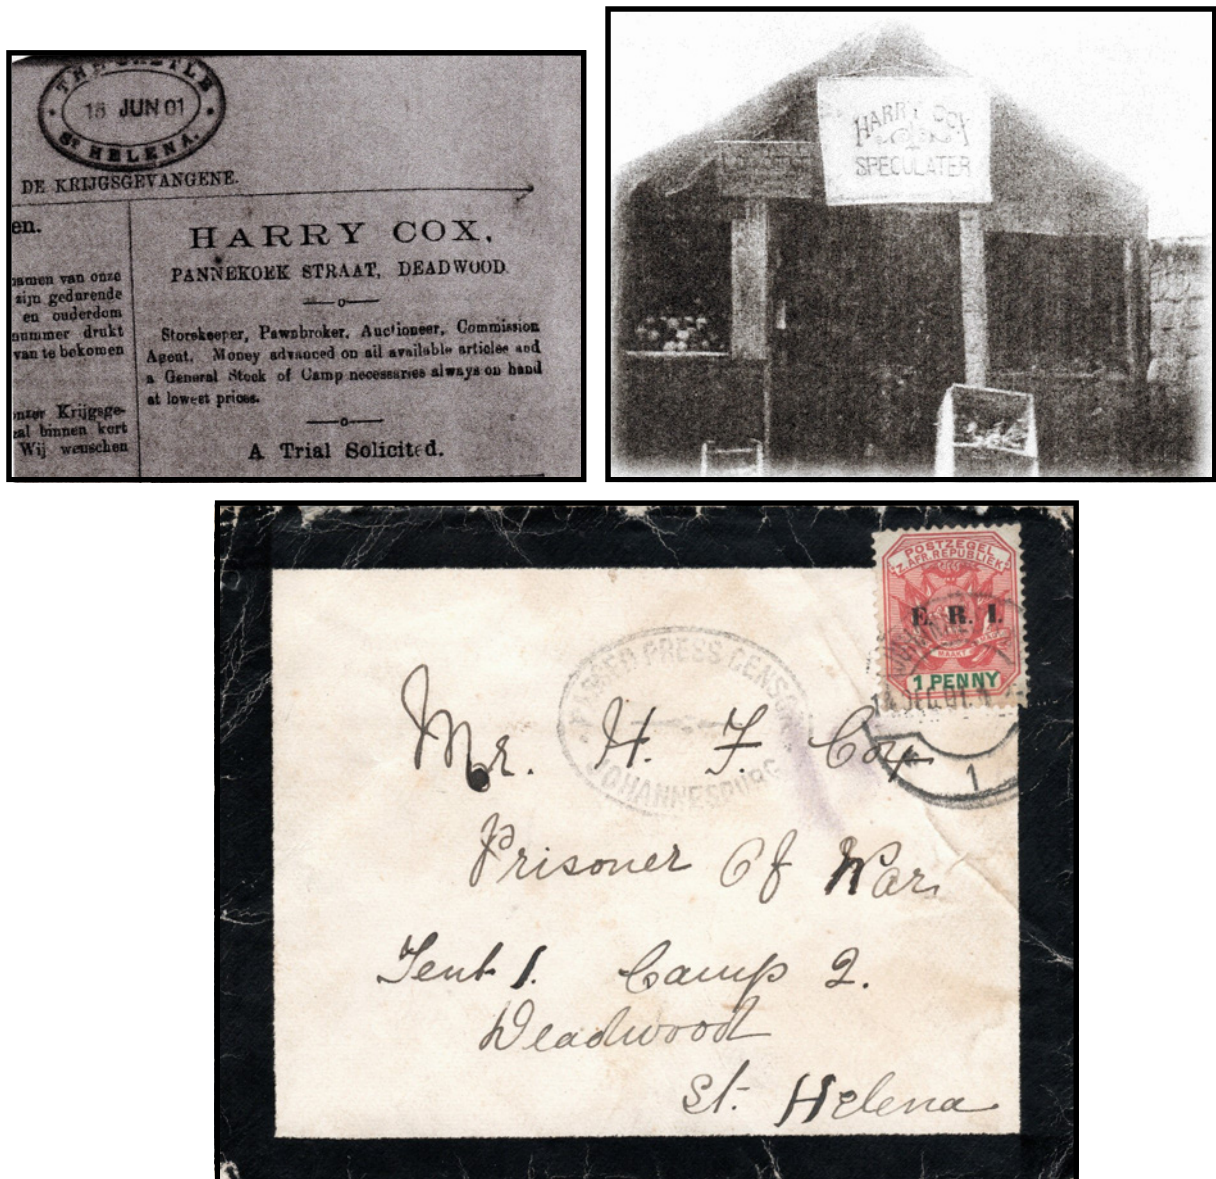 THE CASTLE
JUN 01
ST HELENA.
DE KRIJGSGEVANGENE.
en.
namen van onze
zijn gedurende
en ouderdom
nummer drukt
van te bekomen
Krijgsge-
binnen kort
Wij wenschen
HARRY COX,
PANNEKOEK STRAAT, DEADWOOD.
Storekeeper, Pawnbroker, Auctioneer, Commission
Agent. Money advanced on all available articles and
a General Stock of Camp necessaries always on hand
at lowest prices.
A Trial Solicited.
HARRY COX
SPECULATER
POSTZEGEL
Z. AFR. REPUBLIEK
E. R. I.
MAAKT
1 PENNY
1
PASSED PRESS CENSOR
JOHANNESBURG
Mr. H. F. Cox
Prisoner Of War
Tent 1. Camp 2.
Deadwood
St. Helena